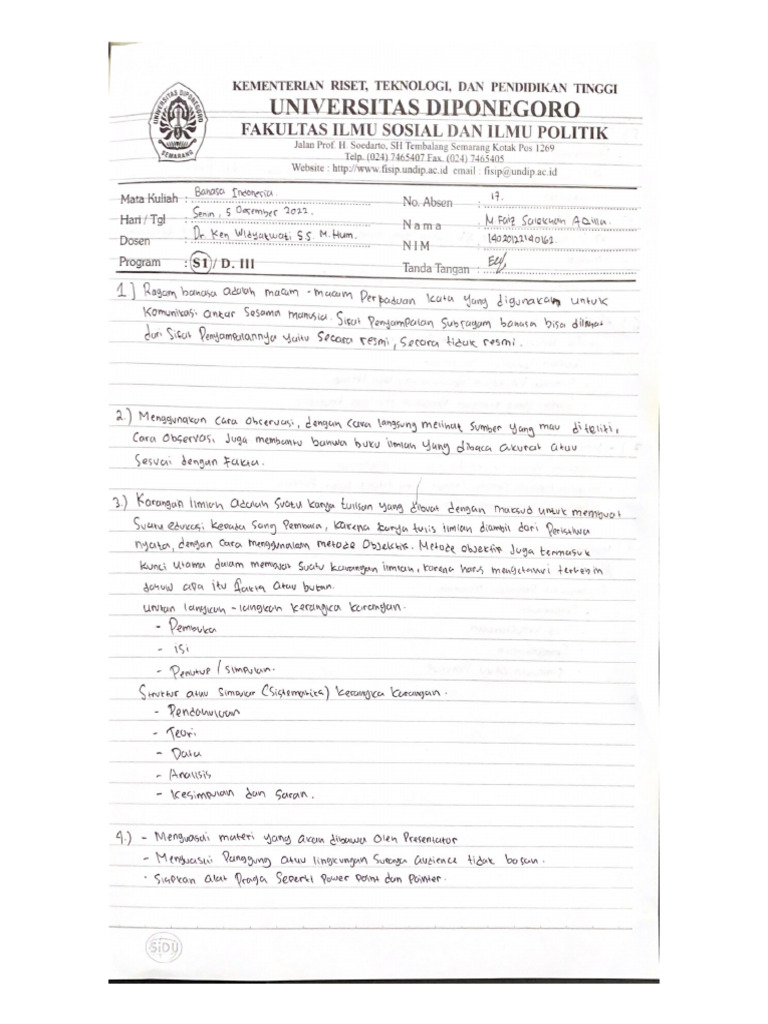 KEMENTERIAN RISET, TEKNOLOGI, DAN PENDIDIKAN TINGGI
UNIVERSITAS DIPONEGORO
FAKULTAS ILMU SOSIAL DAN ILMU POLITIK
Jalan Prof. H. Soedarto, SH Tembalang Semarang Kotak Pos 1269
Telp. (024) 7465407 Fax. (024) 7465405
Website : http://www.fisip.undip.ac.id email : fisip@undip.ac.id
UNIVERSITAS DIPONEGORO
SEMARANG
Mata Kuliah : Bahasa Indonesia.
Hari / Tgl : Senin, 5 Desember 2022.
Dosen : Dr. Ken Widyatwati S.S. M.Hum.
Program : S1 / D. III
No. Absen : 17.
Nama : M Faiz
NIM : 14020122140162
Tanda Tangan :
1) Ragam bahasa adalah macam - macam Perpaduan kata yang digunakan untuk
komunikasi antar sesama manusia. Sifat Penyampaian Subragam bahasa bisa dilihat
dari Sifat Penyampaiannya yaitu Secara resmi, Secara tidak resmi.
2.) Menggunakan cara Observasi, dengan cara langsung melihat sumber yang mau diteliti,
cara Observasi Juga membantu bahwa buku ilmiah yang dibaca akurat atau
Sesuai dengan Fakta.
3.) Karangan Ilmiah adalah Suatu karya tulisan yang dibuat dengan maksud untuk membuat
Suatu edukasi kepada Sang Pembaca, karena karya tulis Ilmiah diambil dari Peristiwa
nyata, dengan cara menggunakan metode Objektif. Metode objektif Juga termasuk
kunci Utama dalam membuat Suatu karangan ilmiah, karena harus mengetahui terlebih
dahulu apa itu fakta atau bukan.
Urutan langkah - langkah kerangka karangan.
- Pembuka
- ISI
- Penutup / Simpulan.
Struktur atau (Sistematika) kerangka karangan.
- Pendahuluan
- Teori
- Data
- Analisis
- Kesimpulan dan Saran.
4.) - Menguasai materi yang akan dibawa Oleh Presentator
- Menguasai Panggung atau lingkungan Supaya audience tidak bosan.
- Siapkan alat Praga Seperti Power Point dan Pointer.
SiDU